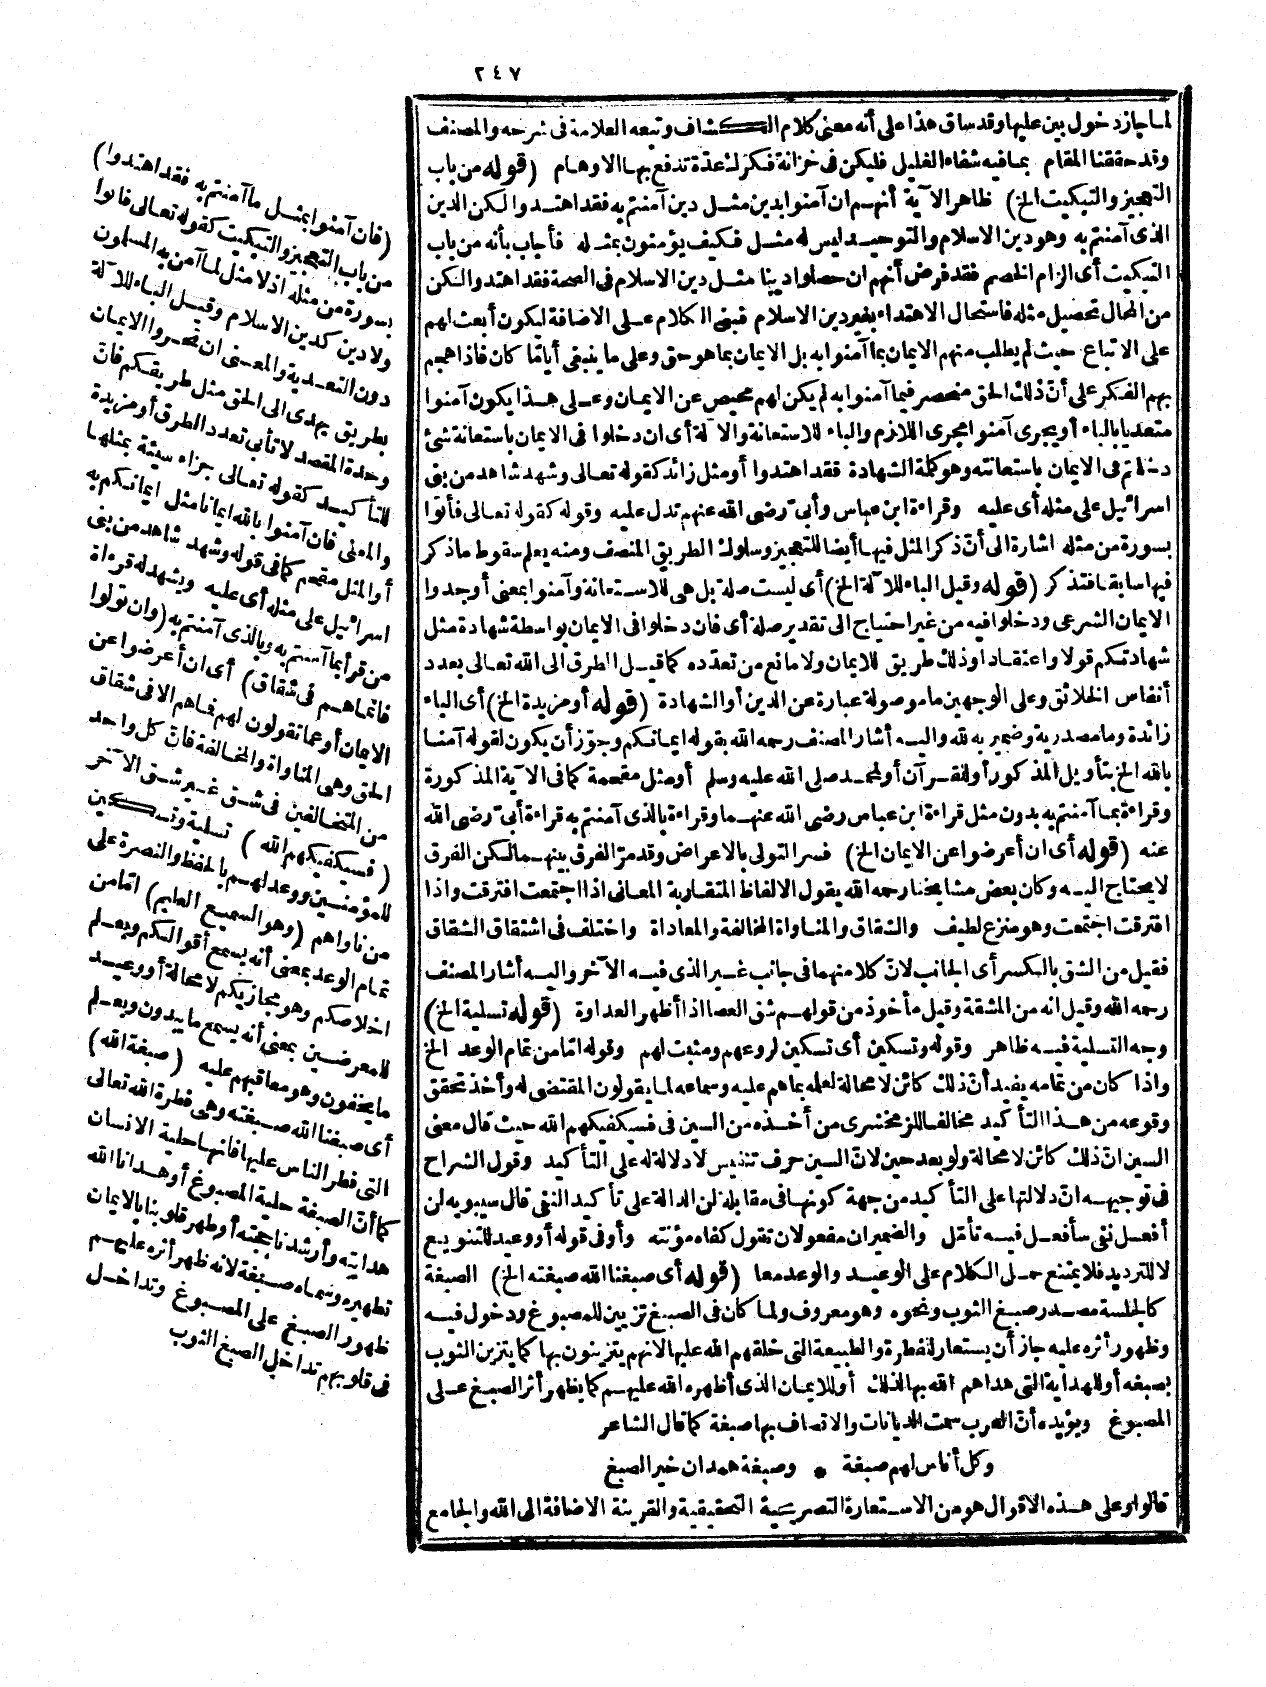 ٢٤٧
لما جاز دخول بين عليها وقد ساق هذا على أنه معنى كلام الكشاف وتبعه العلامة فى شرحه والمصنف
وقد حققنا المقام بما فيه شفاء الغليل فليكن فى خزانة فكرك عدة تدفع بها الاوهام (قوله من باب
التعجيز والتبكيت الخ) ظاهر الآية أنهم ان آمنوا بدين مثل دين آمنتم به فقد اهتدوا لكن الدين
الذى آمنتم به وهو دين الاسلام والتوحيد ليس له مثل فكيف يؤمنون بمثله فأجاب بأنه من باب
التبكيت أى الزام الخصم فقد فرض أنهم ان حصلوا دينا مثل دين الاسلام فى الصحة فقد اهتدوا لكن
من المحال تحصيل مثله فاستحال الاهتداء بغير دين الاسلام فبنى الكلام على الاضافة ليكون أبعث لهم
على الاتباع حيث لم يطلب منهم الايمان بما آمنوا به بل الايمان بما هو حق وعلى ما ينبغى أيا ما كان فاذا هجم
بهم الفكر على أنّ ذلك الحق منحصر فيما آمنوا به لم يكن لهم محيص عن الايمان وعلى هذا يكون آمنوا
متعديا بالباء أو يجرى آمنوا مجرى اللازم والباء للاستعانة والآلة أى ان دخلوا فى الايمان باستعانة شئ
دخلتم فى الايمان باستعانته وهو كلمة الشهادة فقد اهتدوا أو مثل زائد كقوله تعالى وشهد شاهد من بنى
اسرائيل على مثله أى عليه وقراءة ابن عباس وأبىّ رضى الله عنهم تدل عليه وقوله كقوله تعالى فأتوا
بسورة من مثله اشارة الى أنّ ذكر المثل فيها أيضا للتعجيز وسلوك الطريق المنصف ومنه يعلم سقوط ما ذكر
فيها سابقا فتذكر (قوله وقيل الباء للآلة الخ) أى ليست صلة بل هى للاستعانة وآمنوا بمعنى أوجدوا
الايمان الشرعى ودخلوا فيه من غير احتياج الى تقدير صلة أى فان دخلوا فى الايمان بواسطة شهادة مثل
شهادتكم قولا واعتقادا وذلك طريق للايمان ولا مانع من تعدده كما قيل الطرق الى الله تعالى بعدد
أنفاس الخلائق وعلى الوجهين ما موصولة عبارة عن الدين أو الشهادة (قوله أو مزيدة الخ) أى الباء
زائدة وما مصدرية وضمير به لله واليه أشار المصنف رحمه الله بقوله ايمانكم وجوّز أن يكون لقوله آمنا
بالله الخ بتأويل المذكور أو للقرآن أو لمحمد صلى الله عليه وسلم أو مثل مقحمة كما فى الآية المذكورة
وقراءة بما آمنتم به بدون مثل قراءة ابن عباس رضى الله عنهما وقراءة بالذى آمنتم به قراءة أبىّ رضى الله
عنه (قوله أى ان أعرضوا عن الايمان الخ) فسر التولى بالاعراض وقد مرّ الفرق بينهما لكن الفرق
لا يحتاج اليه وكان بعض مشايخنا رحمه الله يقول الالفاظ المتقاربة المعانى اذا اجتمعت افترقت واذا
افترقت اجتمعت وهو منزع لطيف والشقاق والمناواة المخالفة والمعاداة واختلف فى اشتقاق الشقاق
فقيل من الشق بالكسر أى الجانب لانّ كلا منهما فى جانب غير الذى فيه الآخر واليه أشار المصنف
رحمه الله وقيل انه من المشقة وقيل مأخوذ من قولهم شق العصا اذا أظهر العداوة (قوله تسلية الخ)
وجه التسلية فيه ظاهر وقوله وتسكين أى تسكين لروعهم ومثبت لهم وقوله امّا من تمام الوعد الخ
واذا كان من تمامه يفيد أنّ ذلك كائن لا محالة لعلمه بما هم عليه وسماعه لما يقولون المقتضى له وأخذ تحقق
وقوعه من هذا التأكيد مخالفا للزمخشرى من أخذه من السين فى فسيكفيكهم الله حيث قال معنى
السين انّ ذلك كائن لا محالة ولو بعد حين لانّ السين حرف تنفيس لا دلالة له على التأكيد وقول الشراح
فى توجيهه انّ دلالتها على التأكيد من جهة كونها فى مقابلة لن الدالة على تأكيد النفى قال سيبويه لن
أفعل نفى سأفعل فيه تأمّل والضميران مفعولان تقول كفاه مؤنته وأو فى قوله أو وعيد للتنويع
لا للترديد فلا يمتنع حمل الكلام على الوعيد والوعد معا (قوله أى صبغنا الله صبغته الخ) الصبغة
كالجلسة مصدر صبغ الثوب ونحوه وهو معروف ولما كان فى الصبغ تزيين للمصبوغ ودخول فيه
وظهور أثره عليه جاز أن يستعار للفطرة والطبيعة التى خلقهم الله عليها لانهم يتزينون بها كما يتزين الثوب
بصبغه أو للهداية التى هداهم الله بها لذلك أو للايمان الذى أظهره الله عليهم كما يظهر أثر الصبغ على
المصبوغ ويؤيده أنّ العرب سمت الديانات والاتصاف بها صبغة كما قال الشاعر
وكل أناس لهم صبغة * وصبغة همدان خير الصبغ
قالوا وعلى هذه الاقوال هو من الاستعارة التصريحية التحقيقية والقرينة الاضافة الى الله والجامع
(فان آمنوا بمثل ما آمنتم به فقد اهتدوا)
من باب التعجيز والتبكيت كقوله تعالى فاتوا
بسورة من مثله اذ لا مثل لما آمن به المسلمون
ولا دين كدين الاسلام وقيل الباء للآلة
دون التعدية والمعنى ان تحروا الايمان
بطريق يهدى الى الحق مثل طريقكم فانّ
وحدة المقصد لا تأبى تعدد الطرق أو مزيدة
للتأكيد كقوله تعالى جزاء سيئة بمثلها
والمعنى فان آمنوا بالله ايمانا مثل ايمانكم به
أو المثل مقحم كما فى قوله وشهد شاهد من بنى
اسرائيل على مثله أى عليه ويشهد له قراءة
من قرأ بما آمنتم به وبالذى آمنتم به (وان تولوا
فانما هم فى شقاق) أى ان أعرضوا عن
الايمان أو عما تقولون لهم فما هم الا فى شقاق
الحق وهى المناواة والمخالفة فانّ كل واحد
من المتخالفين فى شق غير شق الآخر
(فسيكفيكهم الله) تسلية وتسكين
للمؤمنين ووعد لهم بالحفظ والنصرة على
من ناواهم (وهو السميع العليم) امّا من
تمام الوعد بمعنى أنه يسمع أقوالكم ويعلم
اخلاصكم وهو مجازيكم لا محالة أو وعيد
للمعرضين بمعنى أنه يسمع ما يبدون ويعلم
ما يخفون وهو معاقبهم عليه (صبغة الله)
أى صبغنا الله صبغته وهى فطرة الله تعالى
التى فطر الناس عليها فانها حلية الانسان
كما أنّ الصبغة حلية المصبوغ أو هدانا الله
هدايته وأرشدنا حجته أو طهر قلوبنا بالايمان
تطهيره وسماه صبغة لانه ظهر أثره عليهم
ظهور الصبغ على المصبوغ وتداخل
فى قلوبهم تداخل الصبغ الثوب